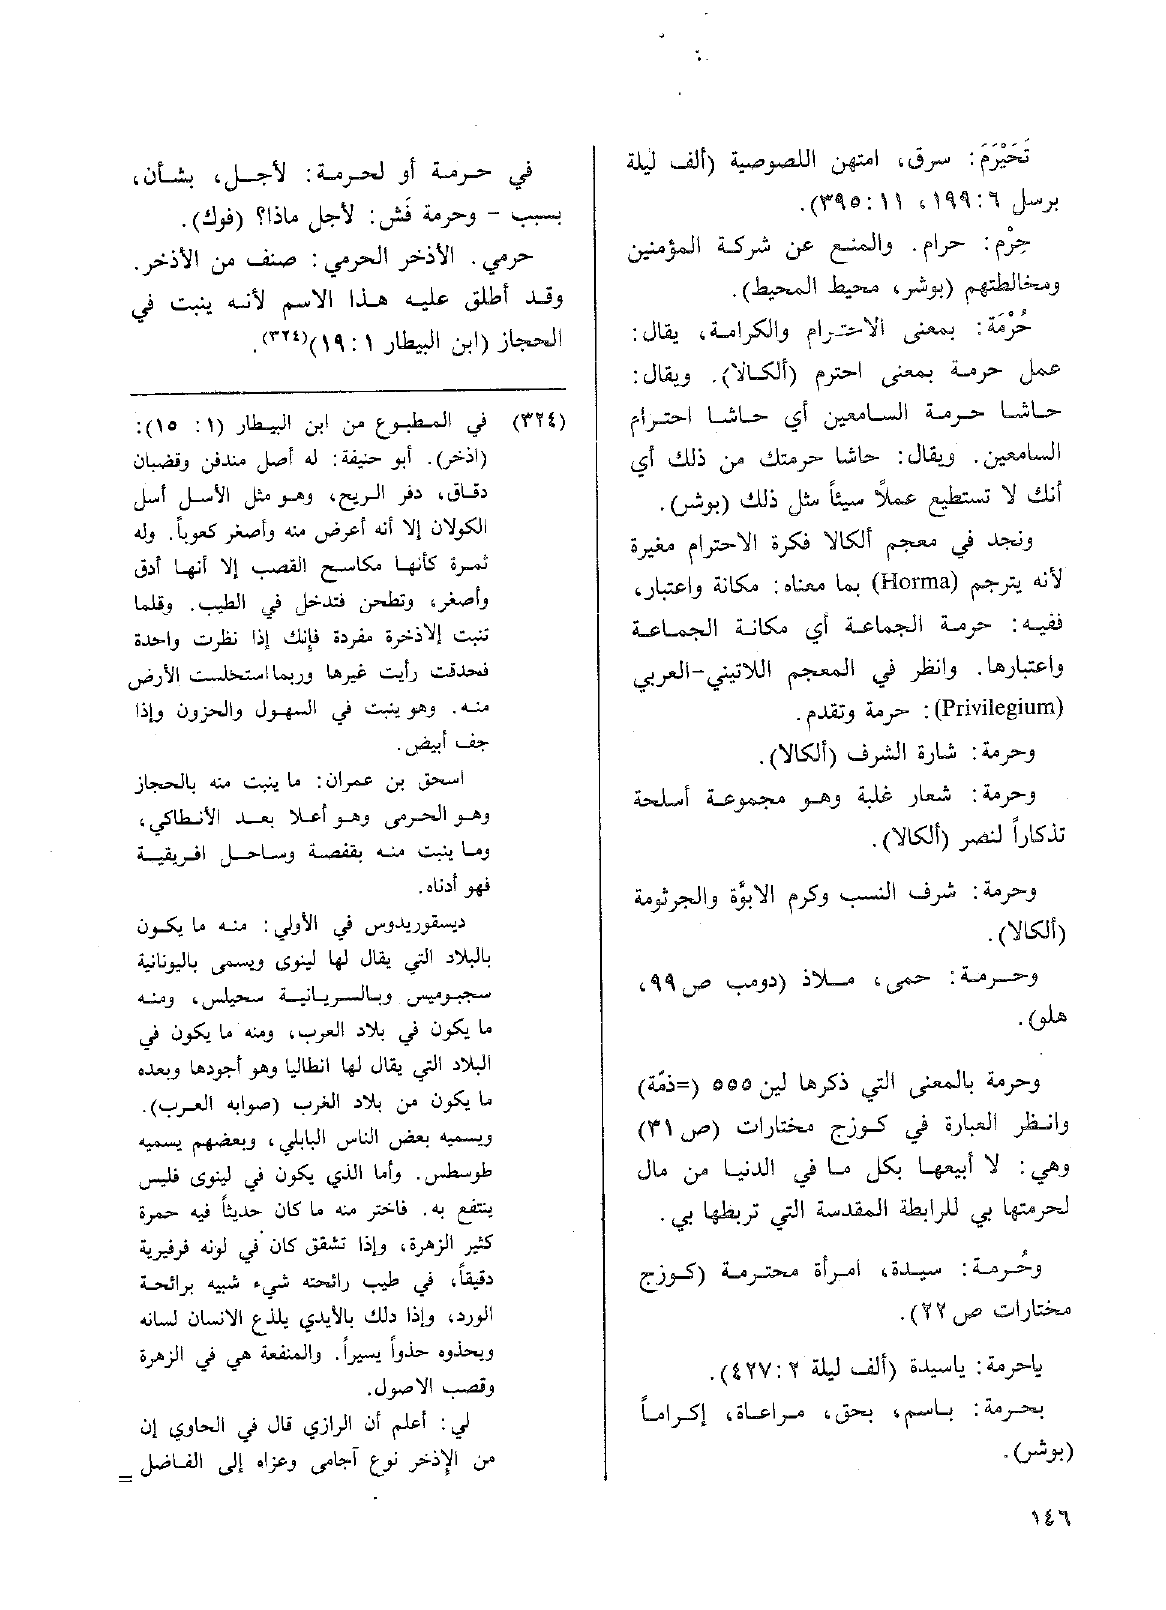 تَحَيْرَمَ: سرق، امتهن اللصوصية (ألف ليلة
برسل ٦: ١٩٩، ١١: ٣٩٥).
حِرْم: حرام. والمنع عن شركة المؤمنين
ومخالطتهم (بوشر، محيط المحيط).
حُرْمَة: بمعنى الاحترام والكرامة، يقال:
عمل حرمة بمعنى احترم (ألكالا). ويقال:
حاشا حرمة السامعين أي حاشا احترام
السامعين. ويقال: حاشا حرمتك من ذلك أي
أنك لا تستطيع عملاً سيئاً مثل ذلك (بوشر).
ونجد في معجم ألكالا فكرة الاحترام مغيرة
لأنه يترجم (Horma) بما معناه: مكانة واعتبار،
ففيه: حرمة الجماعة أي مكانة الجماعة
واعتبارها. وانظر في المعجم اللاتيني-العربي
(Privilegium): حرمة وتقدم.
وحرمة: شارة الشرف (ألكالا).
وحرمة: شعار غلبة وهو مجموعة أسلحة
تذكاراً لنصر (ألكالا).
وحرمة: شرف النسب وكرم الابوَّة والجرثومة
(ألكالا).
وحرمة: حمى، ملاذ (دومب ص٩٩،
هلو).
وحرمة بالمعنى التي ذكرها لين ٥٥٥ (=ذمّة)
وانظر العبارة في كوزج مختارات (ص٣١)
وهي: لا أبيعها بكل ما في الدنيا من مال
لحرمتها بي للرابطة المقدسة التي تربطها بي.
وحُرمة: سيدة، امرأة محترمة (كوزج
مختارات ص٢٢).
ياحرمة: ياسيدة (ألف ليلة ٢: ٤٢٧).
بحرمة: باسم، بحق، مراعاة، إكراماً
(بوشر).
في حرمة أو لحرمة: لأجل، بشأن،
بسبب - وحرمة فَش: لأجل ماذا؟ (فوك).
حرمي. الأذخر الحرمي: صنف من الأذخر.
وقد أطلق عليه هذا الاسم لأنه ينبت في
الحجاز (ابن البيطار ١: ١٩)(٣٢٤).
(٣٢٤) في المطبوع من ابن البيطار (١: ١٥):
(اذخر). أبو حنيفة: له أصل مندفن وقضبان
دقاق، دفر الريح، وهو مثل الأسل أسل
الكولان إلا أنه أعرض منه وأصغر كعوباً. وله
ثمرة كأنها مكاسح القصب إلا أنها أدق
وأصغر، وتطحن فتدخل في الطيب. وقلما
تنبت إلاذخرة مفردة فإنك إذا نظرت واحدة
فحدقت رأيت غيرها وربما استخلست الأرض
منه. وهو ينبت في السهول والحزون وإذا
جف أبيض.
اسحق بن عمران: ما ينبت منه بالحجاز
وهو الحرمى وهو أعلا بعد الأنطاكي،
وما ينبت منه بقفصة وساحل افريقية
فهو أدناه.
ديسقوريدوس في الأولي: منه ما يكون
بالبلاد التي يقال لها لينوى ويسمى باليونانية
سجبوميس وبالسريانية سحيلس، ومنه
ما يكون في بلاد العرب، ومنه ما يكون في
البلاد التي يقال لها انطاليا وهو أجودها وبعده
ما يكون من بلاد الغرب (صوابه العرب).
ويسميه بعض الناس البابلي، وبعضهم يسميه
طوسطس. وأما الذي يكون في لينوى فليس
ينتفع به. فاختر منه ما كان حديثاً فيه حمرة
كثير الزهرة، وإذا تشقق كان في لونه فرفيرية
دقيقاً، في طيب رائحته شيء شبيه برائحة
الورد، وإذا دلك بالأيدي يلذع الانسان لسانه
ويحذوه حذواً يسيراً. والمنفعة هي في الزهرة
وقصب الاصول.
لي: أعلم أن الرازي قال في الحاوي إن
من الإذخر نوع آجامى وعزاه إلى الفاضل =
١٤٦